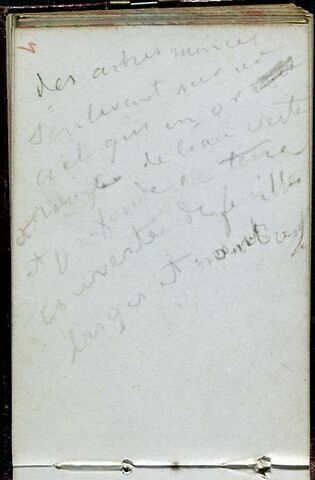 des astres minces
s'enlevant sur un
ciel gris en or
et de l'eau verte
et profonde la terre
couverte de feuilles
larges et